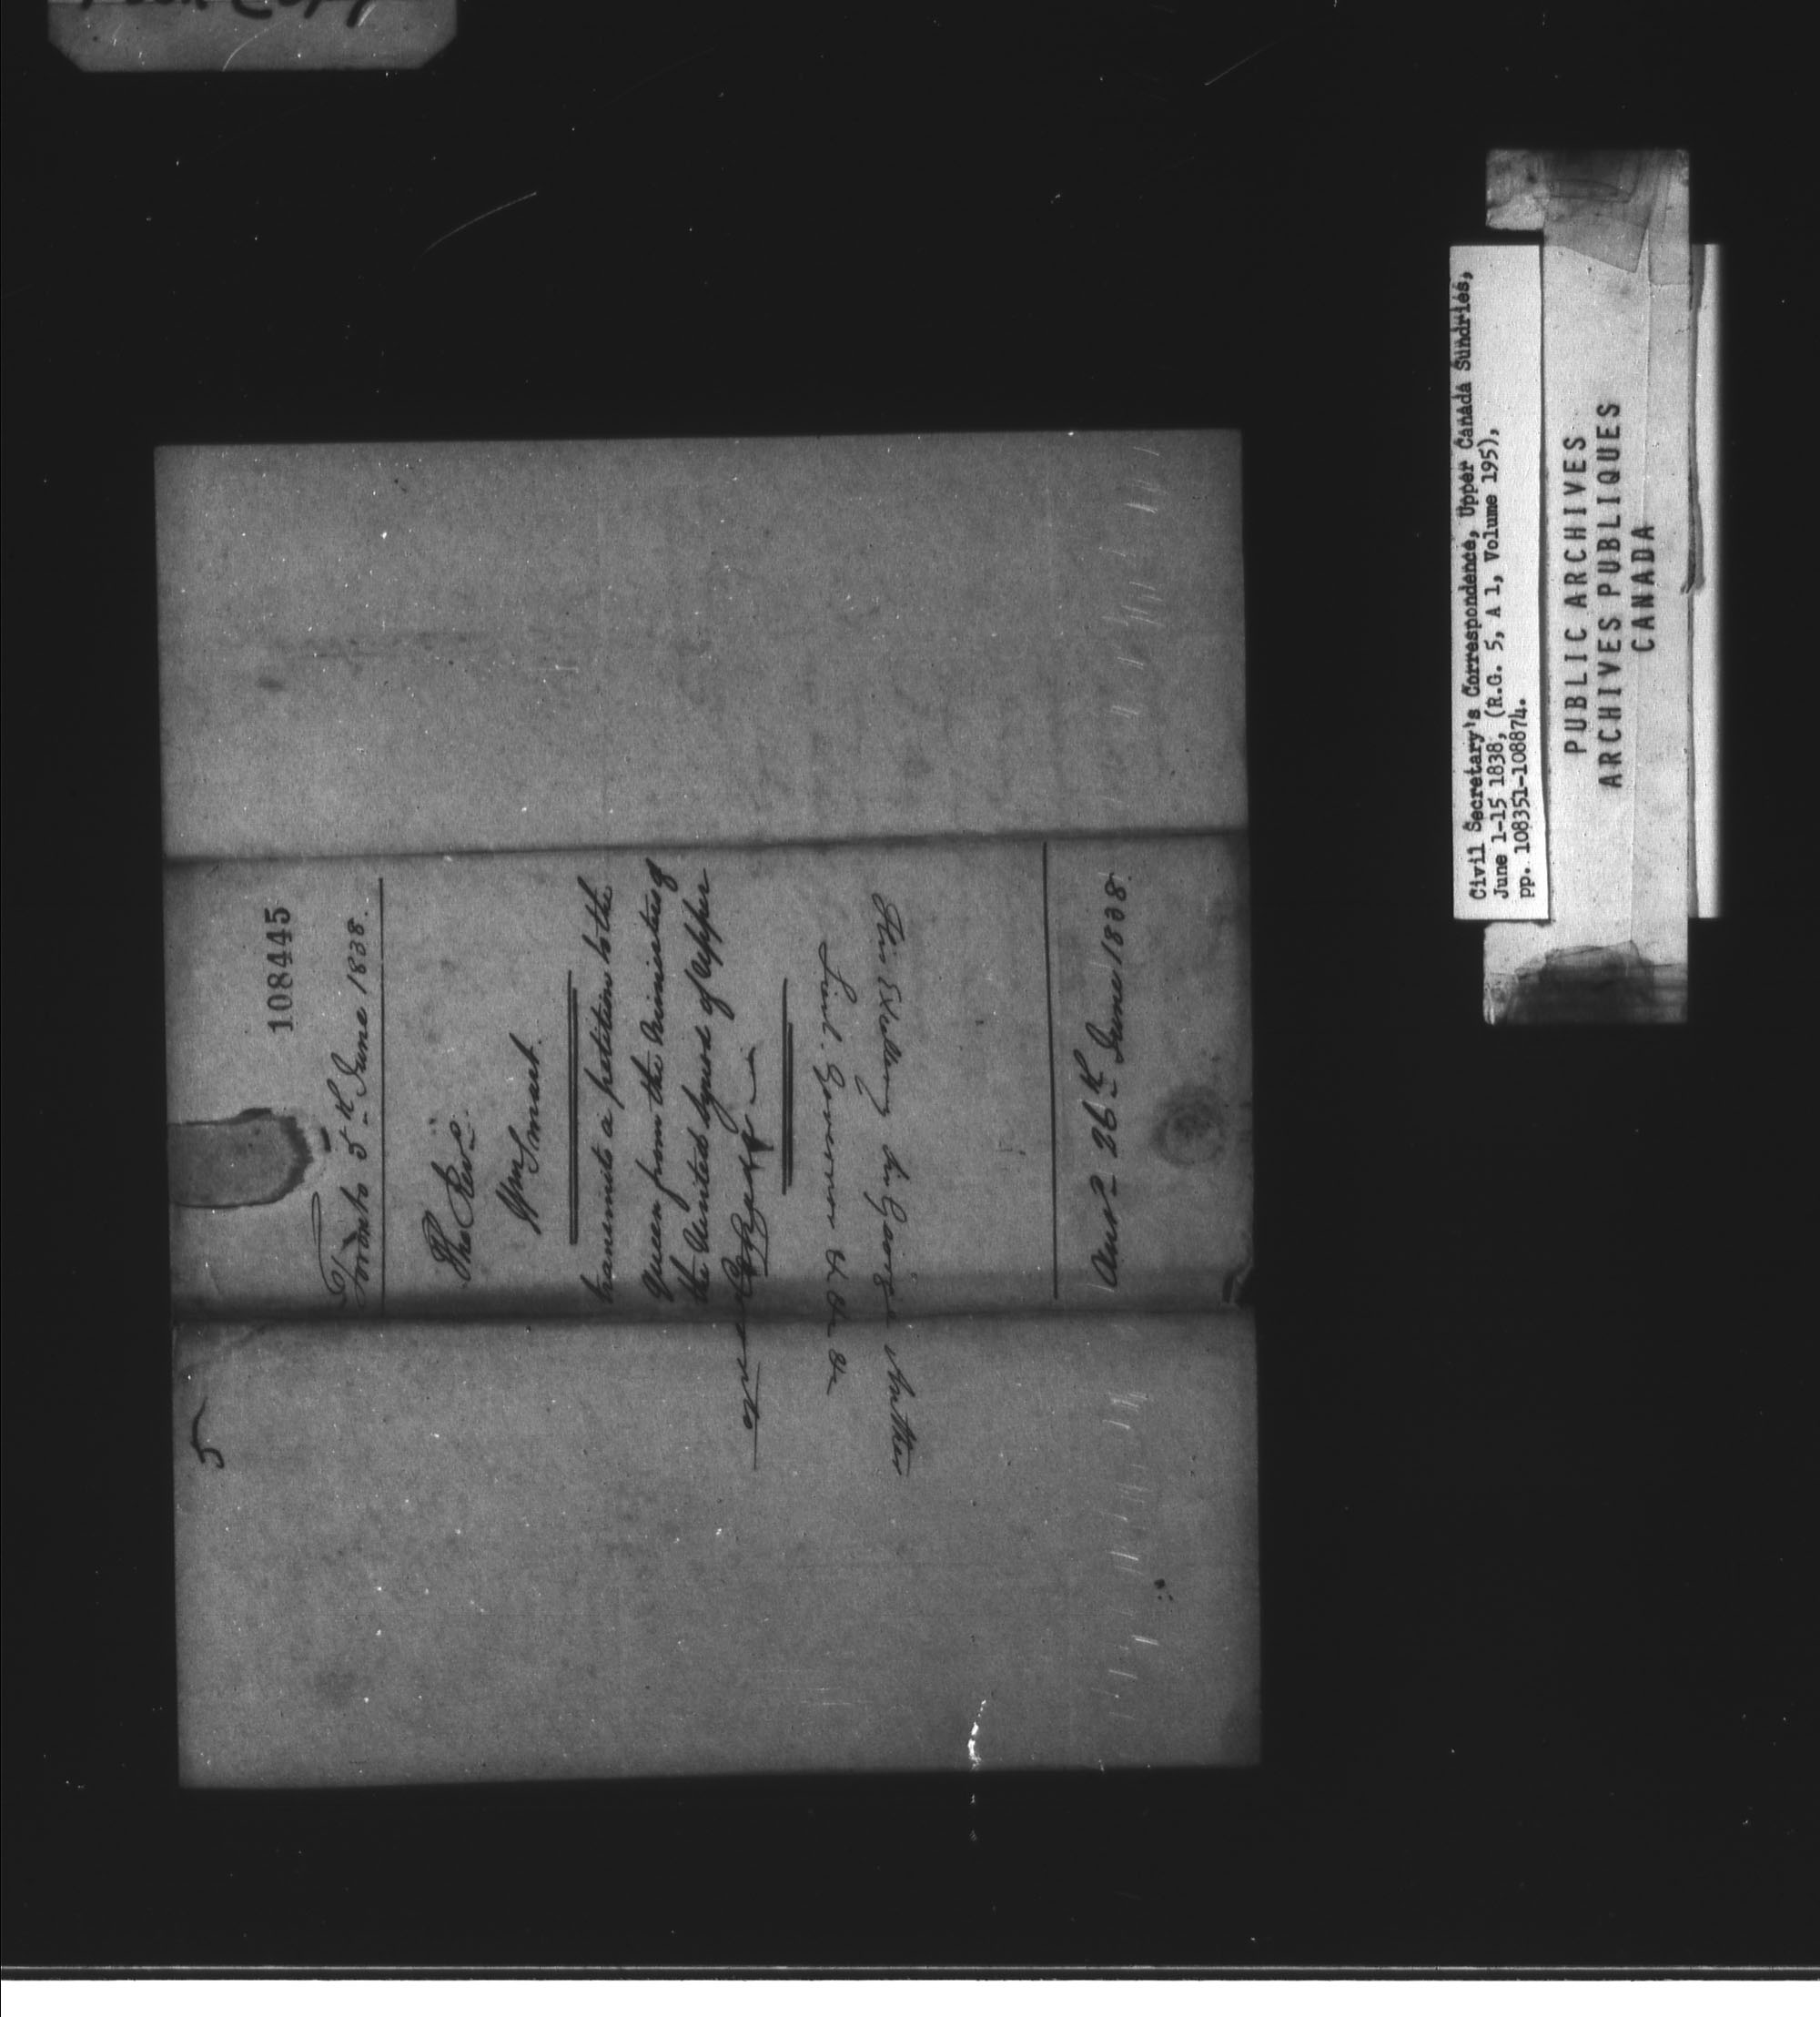 108445
5
Toronto 5th June 1838.
The Revd
Wm Smart.
transmits a petition to the
Queen from the Ministers of
the United Synod of Upper
Canada
Lieut. Governor &c &c &c
His Excellency Sir George Arthur
Ansd 26th June 1838.
Civil Secretary's Correspondence, Upper Canada Sundries,
June 1-15 1838, (R.G. 5, A 1, Volume 195),
pp. 108351-108874.
PUBLIC ARCHIVES
ARCHIVES PUBLIQUES
CANADA